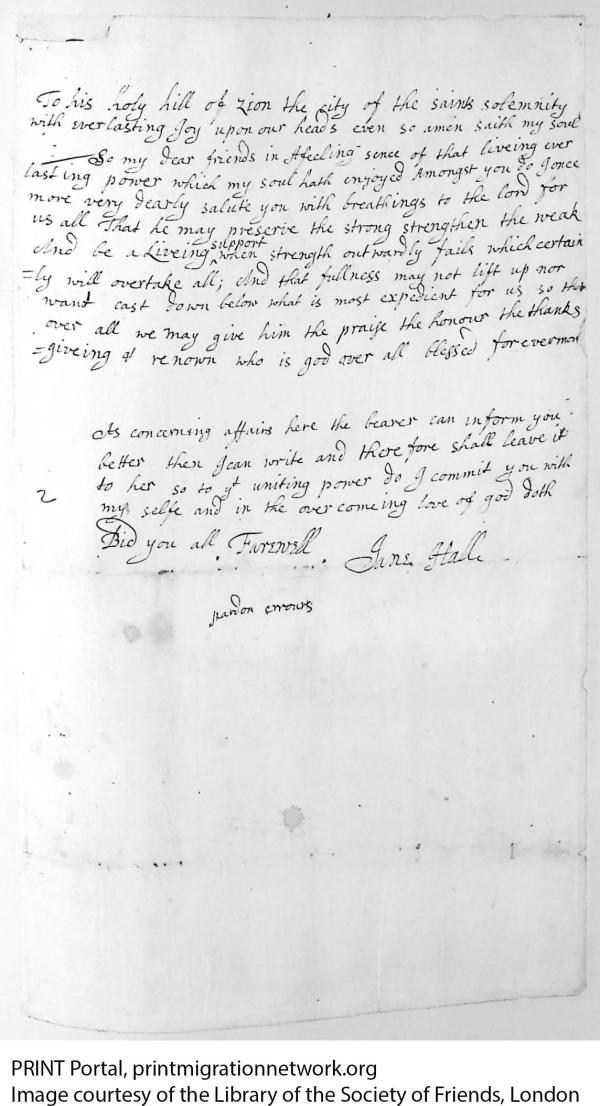 To his holy hill of zion the city of the saints solemnity
with everlasting Joy upon our heads even so amen saith my soul
So my dear friends in A feeling sence of that liveing ever
lasting power which my soul hath enjoyed Amongst you do J once
more very dearly salute you with breathings to the lord for
us all That he may preserve the strong strengthen the weak
And be a Liveing support when strength outwardly fails which certain
=ly will overtake all; And that fullness may not lift up nor
want cast down below what is most expedient for us so that
over all we may give him the praise the honour the thanks
=giveing & renown who is god over all blessed forevermore
As concerning affairs here the bearer can inform you
better then J can write and therefore shall leave it
to her so to yt uniting power do J commit you with
2
my selfe and in the overcomeing love of god doth
Bid you all Farewell Jane Hall
pardon errours
PRINT Portal, printmigrationnetwork.org
Image courtesy of the Library of the Society of Friends, London